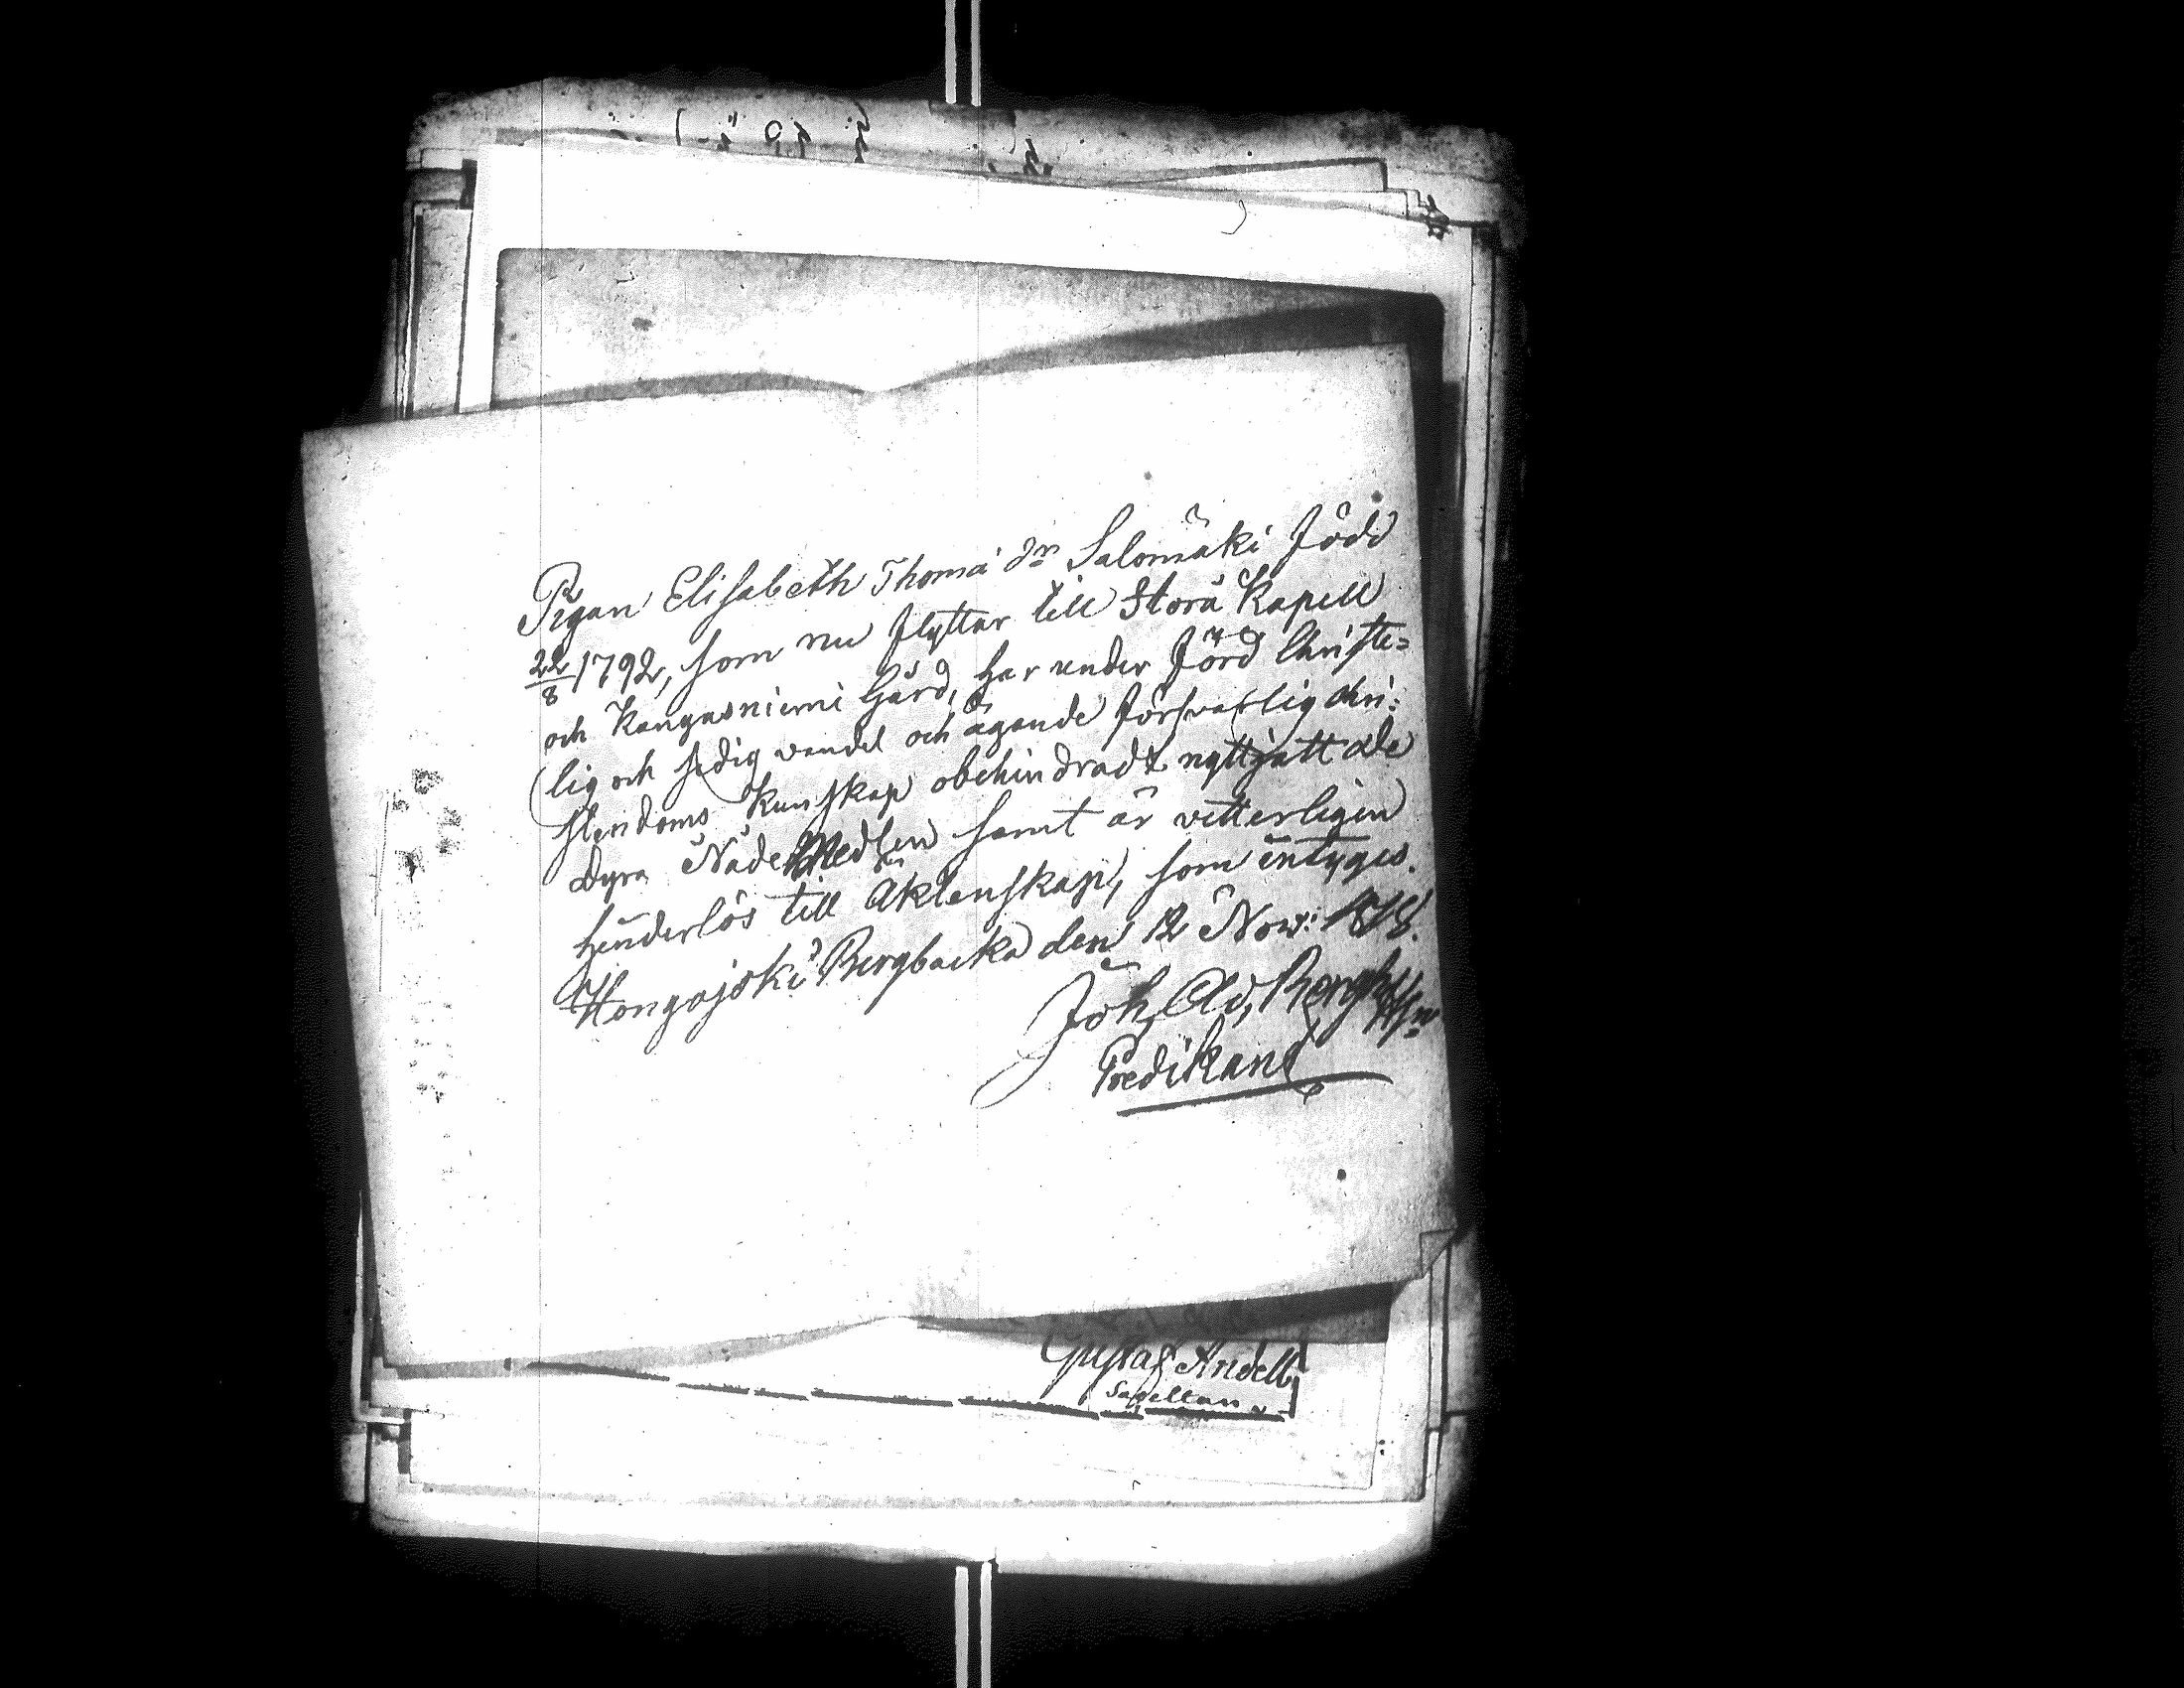 Pigan Elisabeth Thomä dr Salomäki Född
22/8 1792, som nu flyttar till Storå Kapell
och Kangasniemi Gård, har under förd Christe=
lig och sedig vandel och ägande försvarlig Chri=
stendoms Kunskap obehindradt nyttjatt de
Dyra Nåde Medlen samt är vitterligen
henderlös till Äktenskap, som intyges.
Hongojoki Bergbacka den 12 Nov: 1818.
Joh Ad, Bergh
Predikant
Gustaf